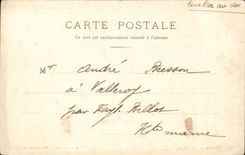 timbre au dos
CARTE POSTALE
Ce côté est exclusivement réservé à l'adresse
Mr André Bresson
à Valleroy
par Fayl-Billot
Hte marne